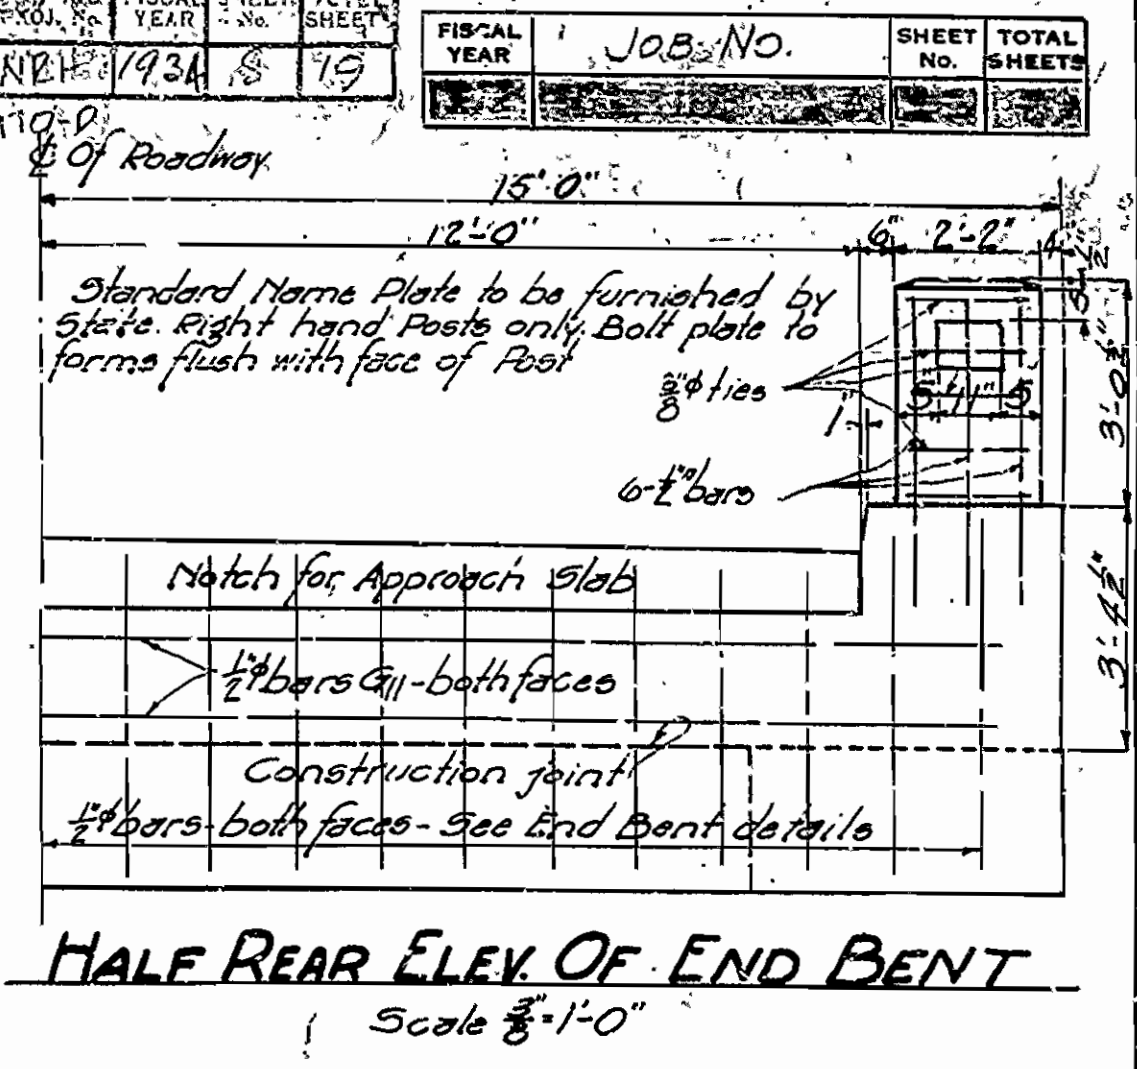 PROJ. No. FISCAL YEAR SHEET No. TOTAL SHEETS
1934 8 19
FISCAL YEAR JOB NO. SHEET No. TOTAL SHEETS
℄ Of Roadway
15'-0"
12'-0" 6" 2'-2" 4"
Standard Name Plate to be furnished by
State. Right hand Posts only. Bolt plate to
forms flush with face of Post
3/8"ϕ ties
5" 11" 5"
1"
3'-0½"
6-½"▫ bars
Notch for Approach Slab
½"ϕ bars G11-both faces
3'-4½"
Construction joint
½"ϕ bars-both faces-See End Bent details
HALF REAR ELEV. OF END BENT
Scale 3/8"=1'-0"